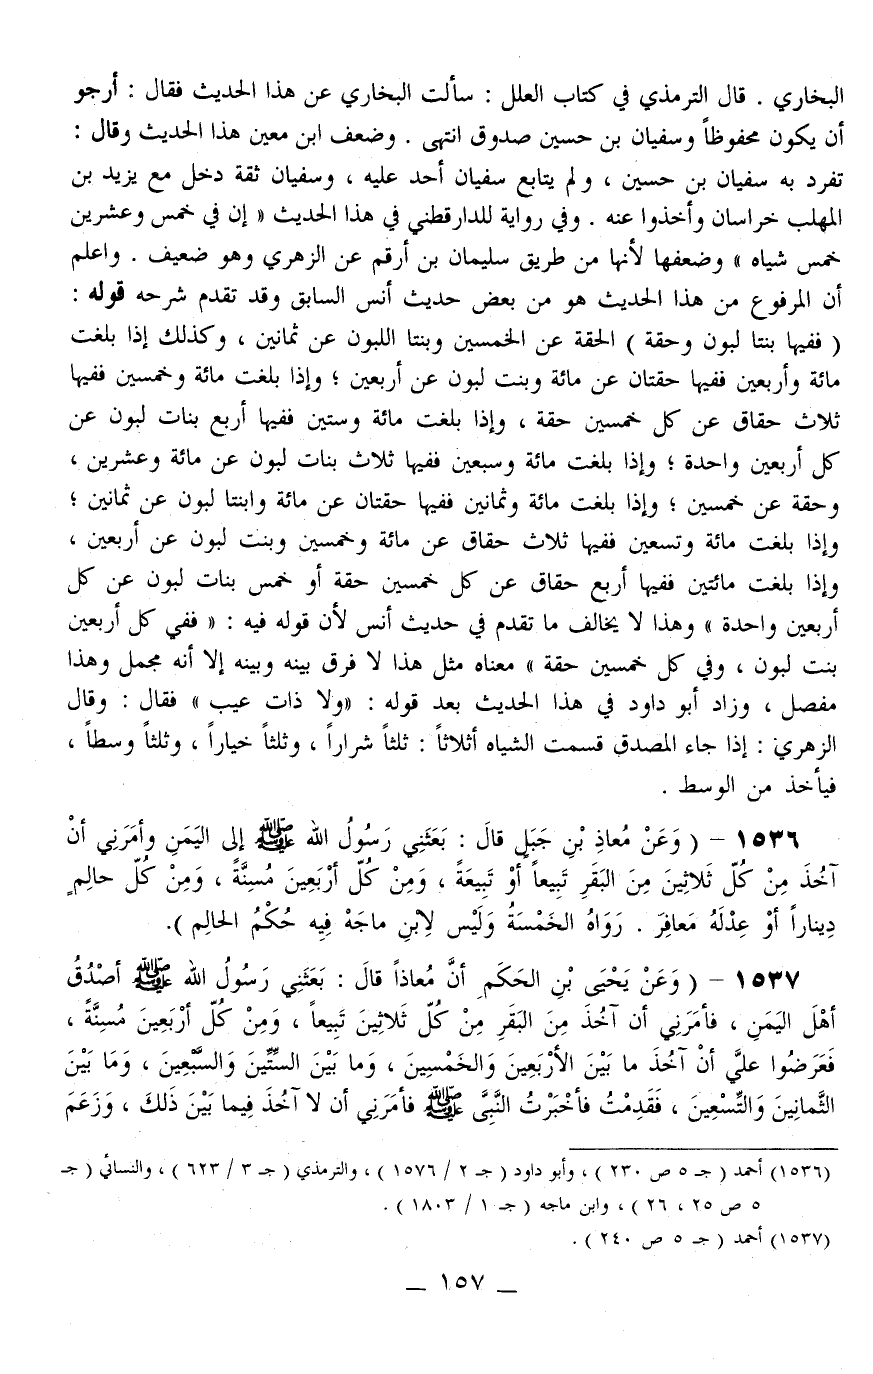 البخاري . قال الترمذي في كتاب العلل : سألت البخاري عن هذا الحديث فقال : أرجو
أن يكون محفوظاً وسفيان بن حسين صدوق انتهى . وضعف ابن معين هذا الحديث وقال :
تفرد به سفيان بن حسين ، ولم يتابع سفيان أحد عليه ، وسفيان ثقة دخل مع يزيد بن
المهلب خراسان وأخذوا عنه . وفي رواية للدارقطني في هذا الحديث « إن في خمس وعشرين
خمس شياه » وضعفها لأنها من طريق سليمان بن أرقم عن الزهري وهو ضعيف . واعلم
أن المرفوع من هذا الحديث هو من بعض حديث أنس السابق وقد تقدم شرحه قوله :
( ففيها بنتا لبون وحقة ) الحقة عن الخمسين وبنتا اللبون عن ثمانين ، وكذلك إذا بلغت
مائة وأربعين ففيها حقتان عن مائة وبنت لبون عن أربعين ؛ وإذا بلغت مائة وخمسين ففيها
ثلاث حقاق عن كل خمسين حقة ، وإذا بلغت مائة وستين ففيها أربع بنات لبون عن
كل أربعين واحدة ؛ وإذا بلغت مائة وسبعين ففيها ثلاث بنات لبون عن مائة وعشرين ،
وحقة عن خمسين ؛ وإذا بلغت مائة وثمانين ففيها حقتان عن مائة وابنتا لبون عن ثمانين ؛
وإذا بلغت مائة وتسعين ففيها ثلاث حقاق عن مائة وخمسين وبنت لبون عن أربعين ،
وإذا بلغت مائتين ففيها أربع حقاق عن كل خمسين حقة أو خمس بنات لبون عن كل
أربعين واحدة » وهذا لا يخالف ما تقدم في حديث أنس لأن قوله فيه : « ففي كل أربعين
بنت لبون ، وفي كل خمسين حقة » معناه مثل هذا لا فرق بينه وبينه إلا أنه مجمل وهذا
مفصل ، وزاد أبو داود في هذا الحديث بعد قوله : «ولا ذات عيب » فقال : وقال
الزهري : إذا جاء المصدق قسمت الشياه أثلاثاً : ثلثاً شراراً ، وثلثاً خياراً ، وثلثاً وسطاً ،
فيأخذ من الوسط .
١٥٣٦ - ( وَعَنْ مُعاذِ بْنِ جَبَلٍ قالَ : بَعَثَنِي رَسُولُ الله ﷺ إلى اليَمَنِ وأمَرَنِي أنْ
آخُذَ مِنْ كُلِّ ثَلاثِينَ مِنَ البَقَرِ تَبِيعاً أوْ تَبِيعَةً ، وَمِنْ كُلِّ أرْبَعِينَ مُسِنَّةً ، وَمِنْ كُلِّ حالِمٍ
دِيناراً أوْ عِدْلَهُ مَعافِرَ . رَوَاهُ الخَمْسَةُ وَلَيْسَ لِابْنِ ماجَهْ فِيهِ حُكْمُ الحالِمِ ).
١٥٣٧ - ( وَعَنْ يَحْيَى بْنِ الحَكَمِ أنَّ مُعاذاً قالَ : بَعَثَنِي رَسُولُ الله ﷺ أصَدِّقُ
أهْلَ اليَمَنِ ، فأمَرَنِي أن آخُذَ مِنَ البَقَرِ مِنْ كُلِّ ثَلاثِينَ تَبِيعاً ، وَمِنْ كُلِّ أرْبَعِينَ مُسِنَّةً ،
فَعَرَضُوا عليَّ أنْ آخُذَ ما بَيْنَ الأرْبَعِينَ وَالخَمْسِينَ ، وَما بَيْنَ السِّتِّينَ وَالسَّبْعِينَ ، وَمَا بَيْنَ
الثَّمانِينَ وَالتِّسْعِينَ ، فَقَدِمْتُ فأخْبَرْتُ النَّبِيَّ ﷺ فأمَرَنِي أن لا آخُذَ فِيما بَيْنَ ذَلكَ ، وَزَعَمَ
(١٥٣٦) أحمد ( جـ ٥ ص ٢٣٠ ) ، وأبو داود ( جـ ٢ / ١٥٧٦ ) ، والترمذي ( جـ ٣ / ٦٢٣ ) ، والنسائي ( جـ
٥ ص ٢٥ ، ٢٦ ) ، وابن ماجه ( جـ ١ / ١٨٠٣ ) .
(١٥٣٧) أحمد ( جـ ٥ ص ٢٤٠ ) .
_ ١٥٧ _